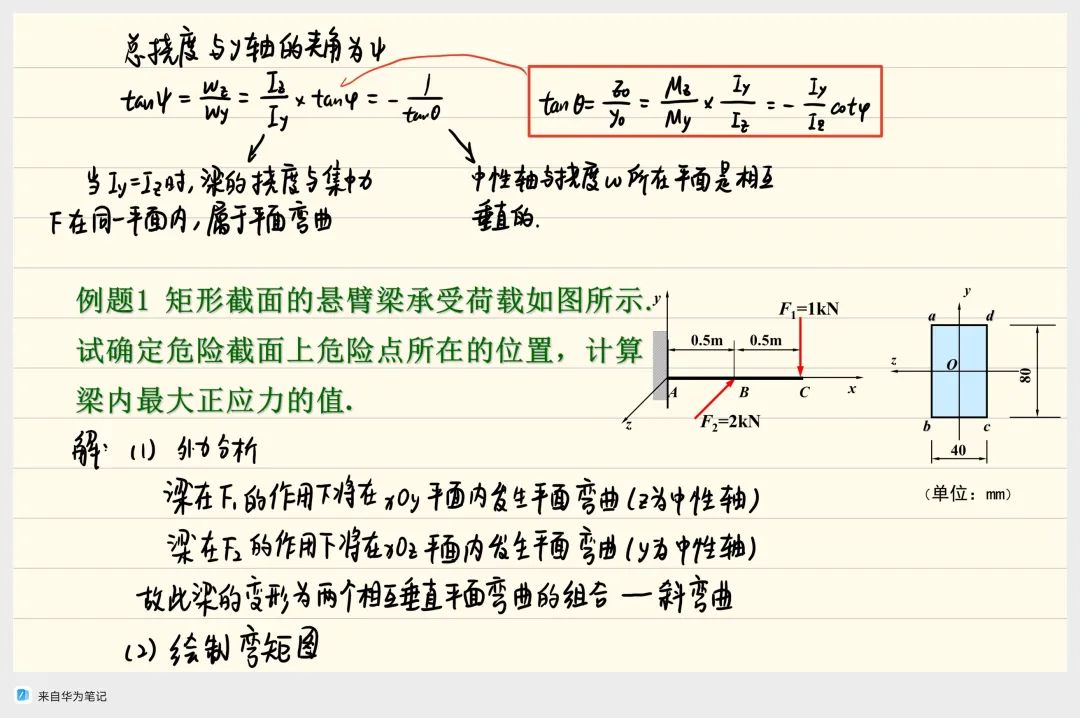 总挠度与y轴的夹角为ψ
tanψ = w_z/w_y = I_z/I_y × tanφ = - 1/tanθ
tanθ = z₀/y₀ = M_z/M_y × I_y/I_z = - I_y/I_z cotφ
当I_y=I_z时,梁的挠度与集中力
F在同一平面内,属于平面弯曲
中性轴与挠度w所在平面是相互
垂直的.
例题1 矩形截面的悬臂梁承受荷载如图所示.
试确定危险截面上危险点所在的位置，计算
梁内最大正应力的值.
y
F₁=1kN
0.5m
0.5m
A
B
C
x
z
F₂=2kN
y
a
d
z
O
80
b
c
40
（单位：mm）
解: (1) 外力分析
梁在F₁的作用下将在xOy平面内发生平面弯曲(z为中性轴)
梁在F₂的作用下将在xOz平面内发生平面弯曲(y为中性轴)
故此梁的变形为两个相互垂直平面弯曲的组合 — 斜弯曲
(2) 绘制弯矩图
来自华为笔记